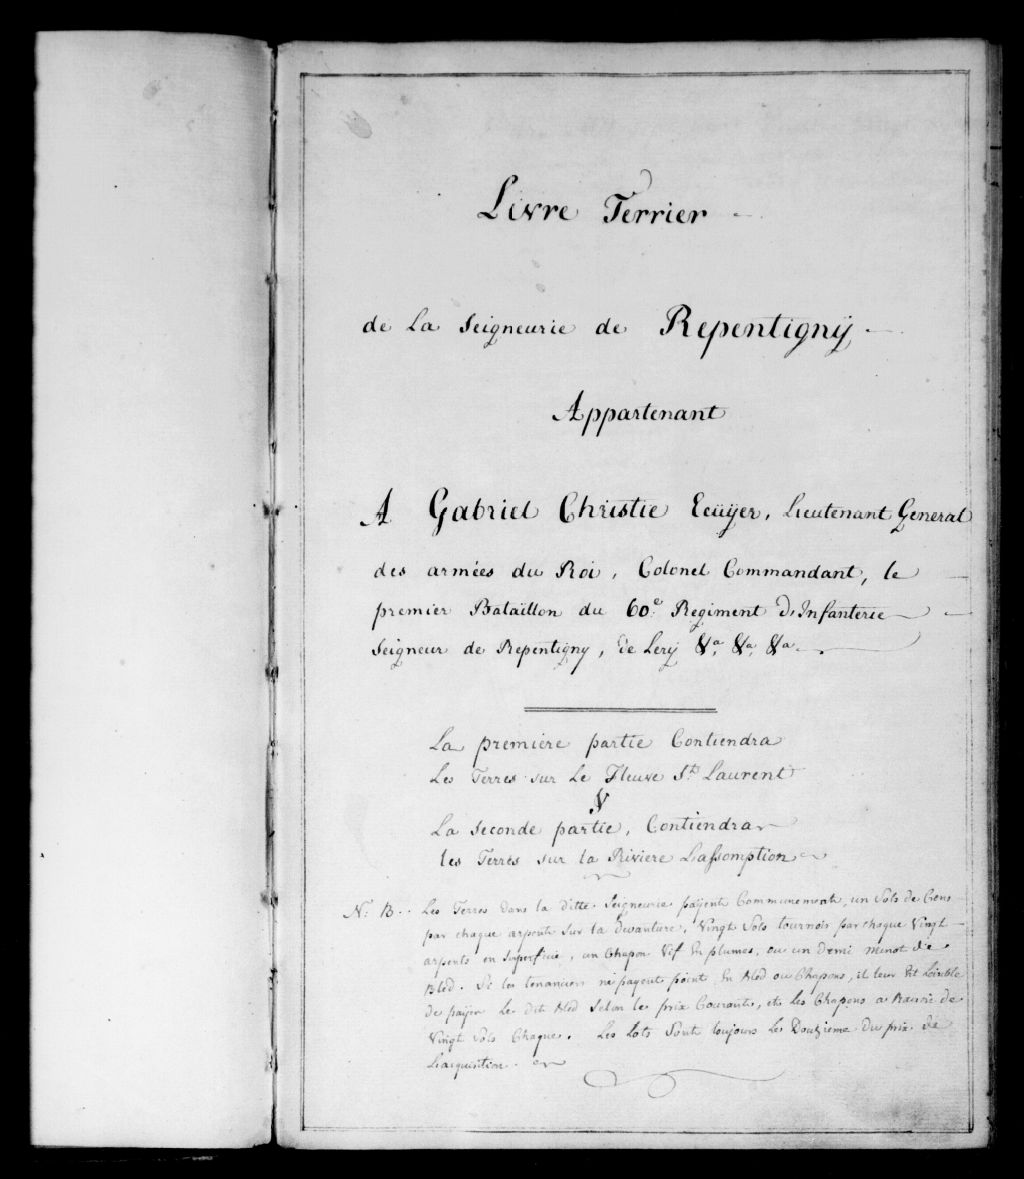 Livre Terrier
de La Seigneurie de Repentignÿ
Appartenant
A Gabriel Christie Ecüÿer, Lieutenant General
des armées du Roi, Colonel Commandant, le
premier Bataillon du 60e. Regiment d'Infanterie
Seigneur de Repentigny, De Lerÿ &a, &a, &a
La premiere partie Contiendra
Les Terres sur Le Fleuve St. Laurent
&
La Seconde partie, Contiendra
les Terres sur la Riviere Lassomption
N: B.. Les Terres dans la ditte Seigneurie paÿent Communement, un Sols de Cens
par chaque arpent sur la Devanture, Vingt Sols tournois par chaque Vingt
arpents en Superficie, un Chapon Vif En plumes, ou un demi minot de
Bled. Si les tenanciers ne payent point En Bled ou Chapons, il leur Est Loisible
de paÿer Le dit Bled Selon le prix Courant, et les Chapons a Raison de
Vingt Sols Chaque. Les Lots Sont toujours Le Douzieme du prix de
L'acquisition.